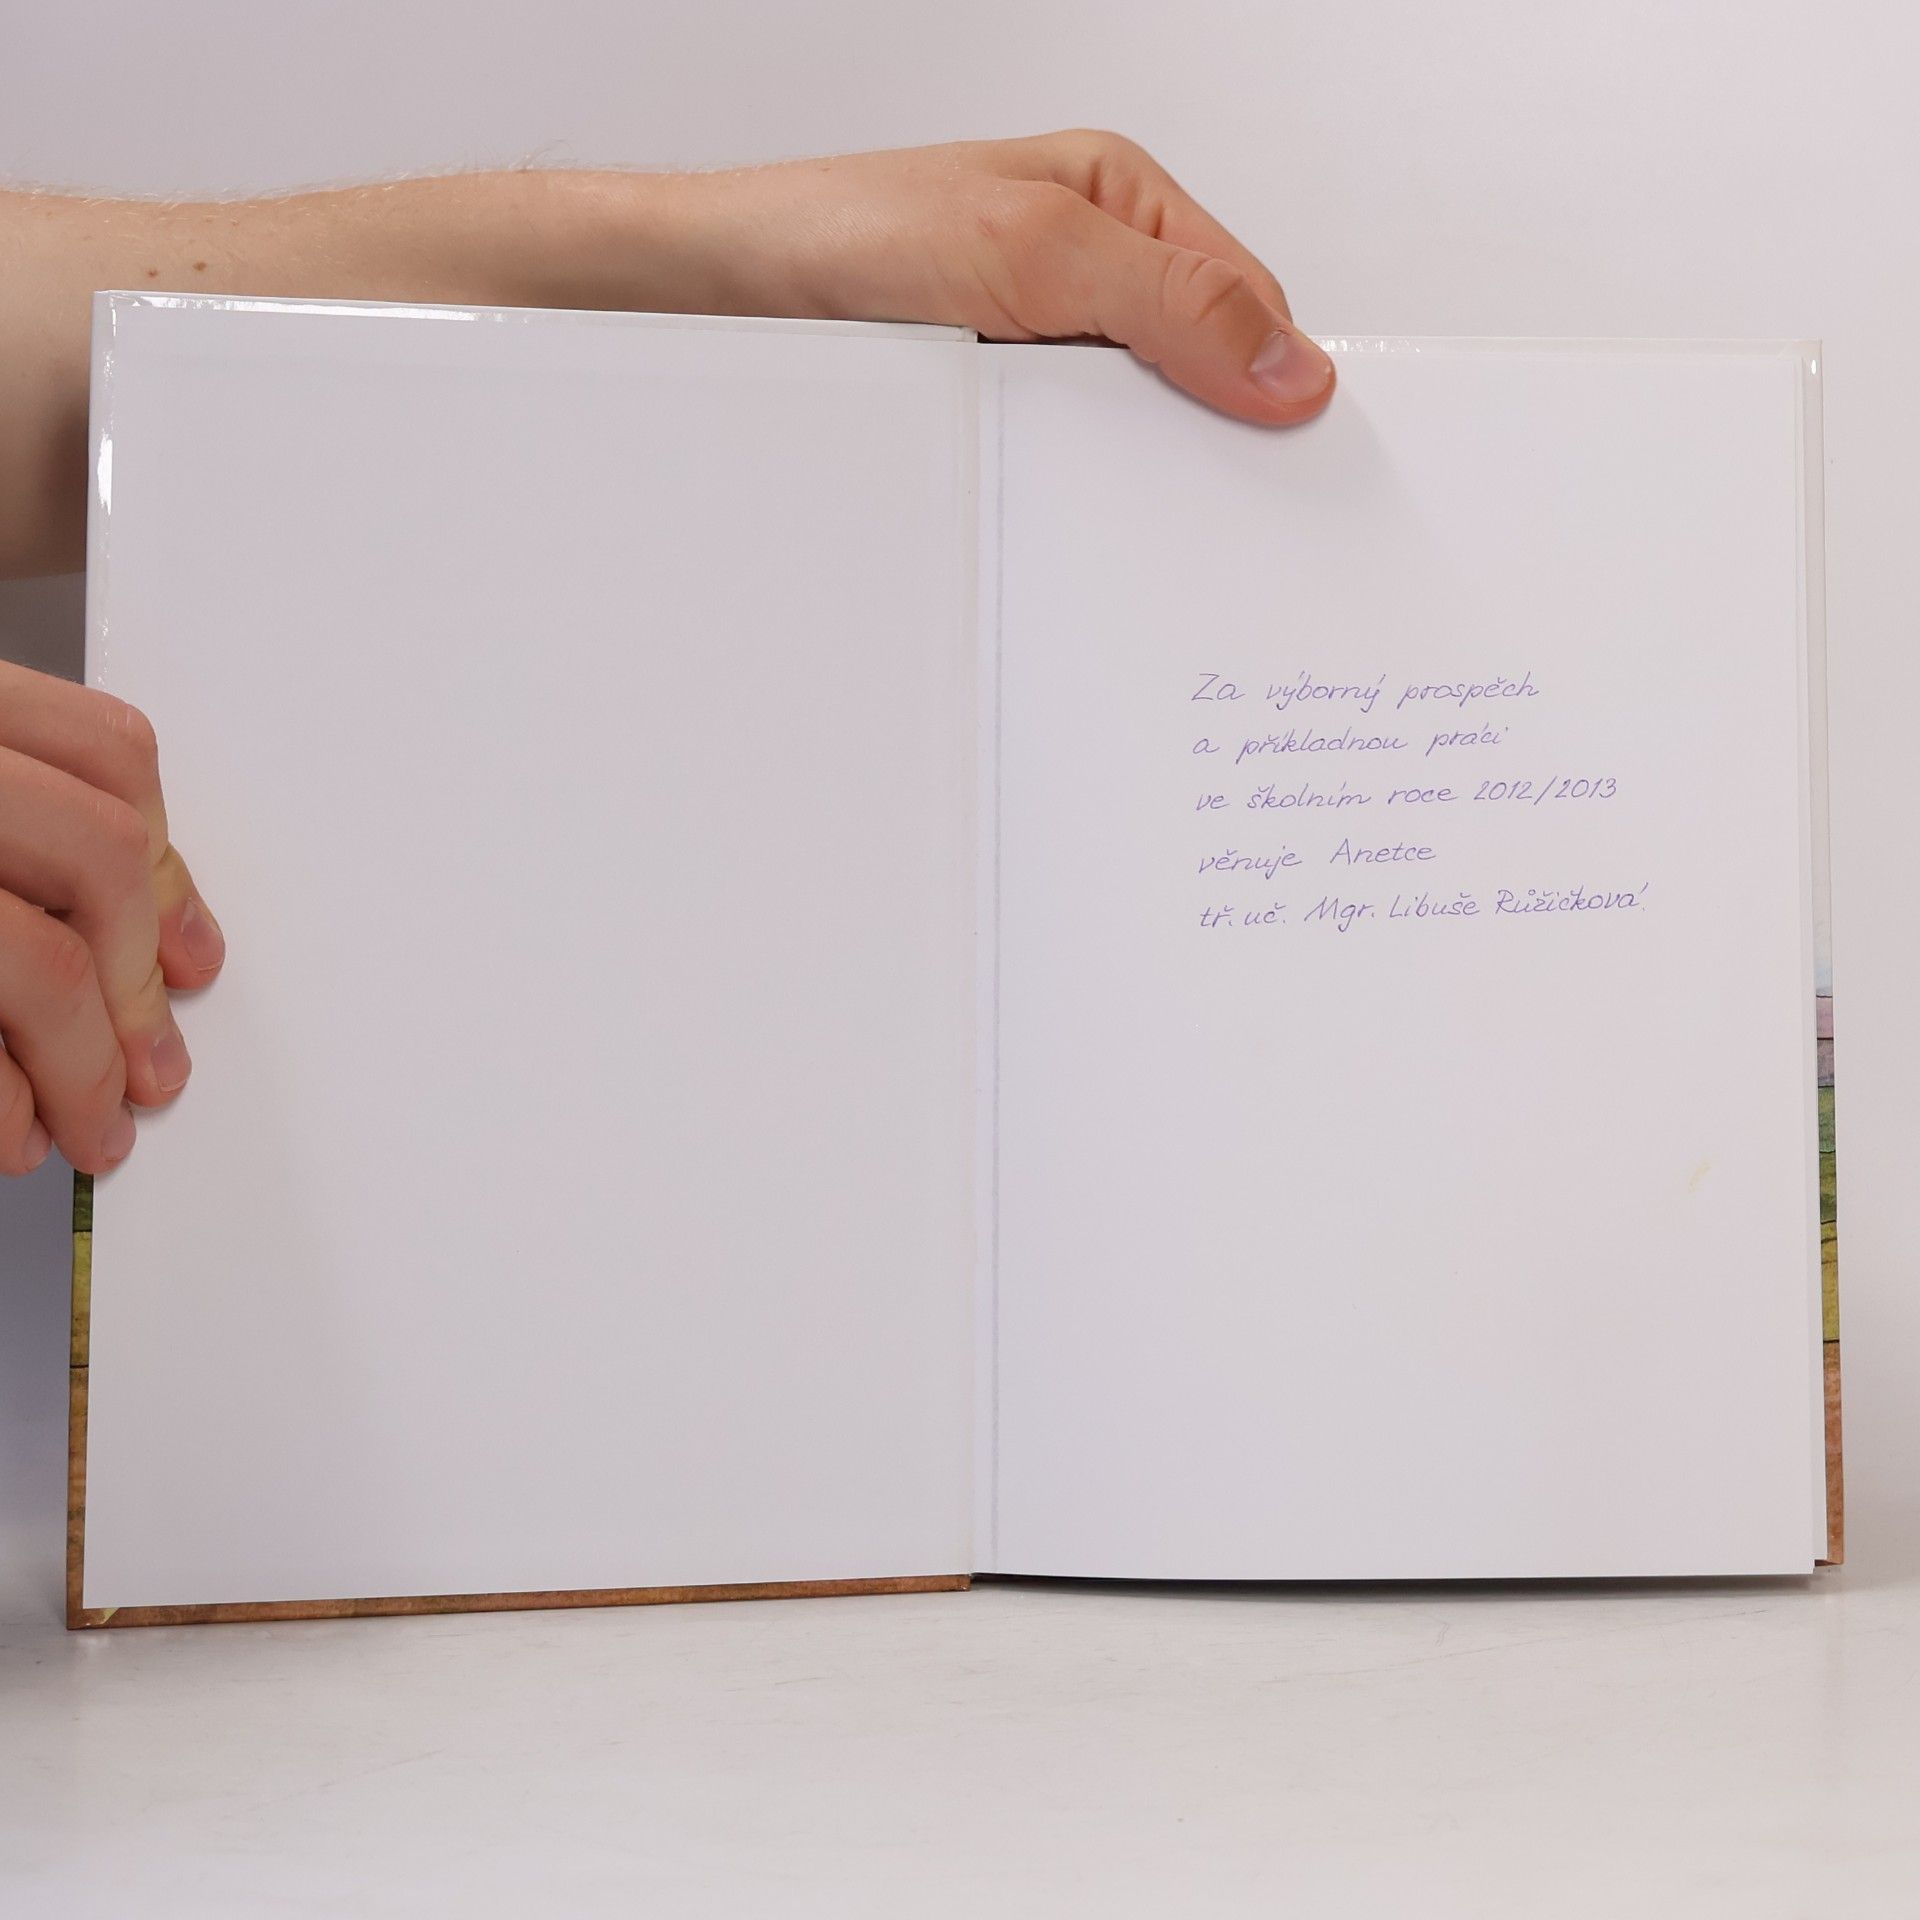 Za výborný prospěch
a příkladnou práci
ve školním roce 2012/2013
věnuje Anetce
tř. uč. Mgr. Libuše Růžičková.